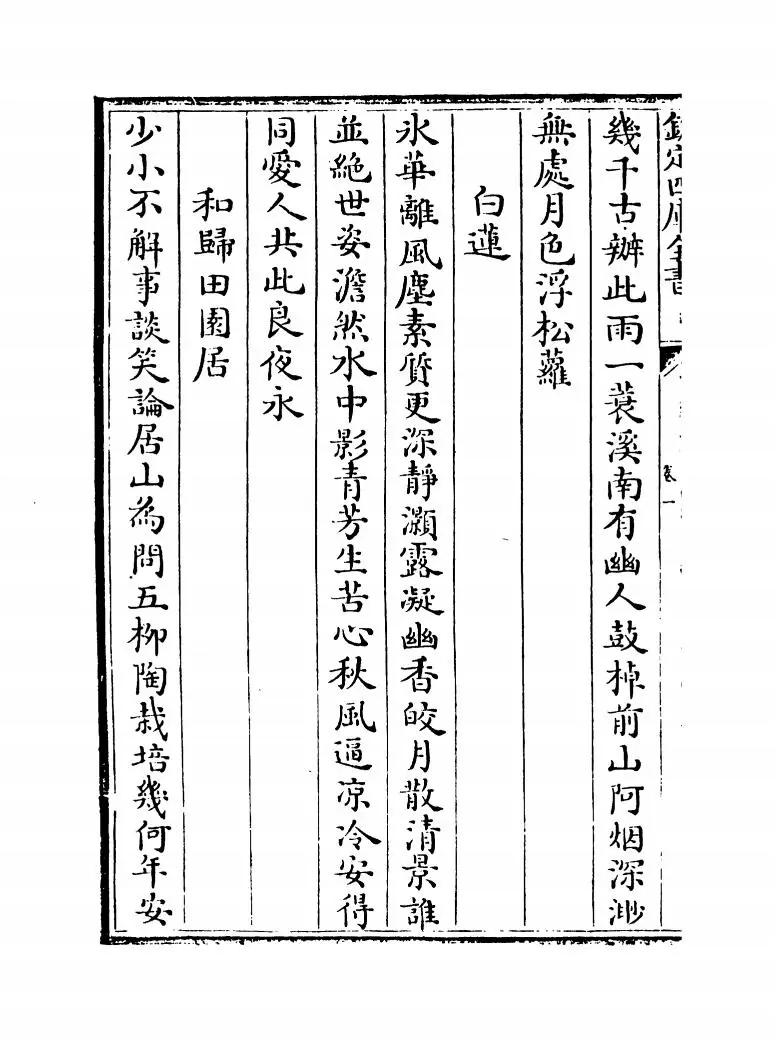 欽定四庫全書
卷一
幾千古辦此雨一蓑溪南有幽人鼓棹前山阿烟深渺
無處月色浮松蘿
白蓮
氷華離風塵素質更深靜灝露凝幽香皎月散清景誰
並絶世姿澹然水中影青芳生苦心秋風逼凉冷安得
同愛人共此良夜永
和歸田園居
少小不解事談笑論居山為問五柳陶栽培幾何年安